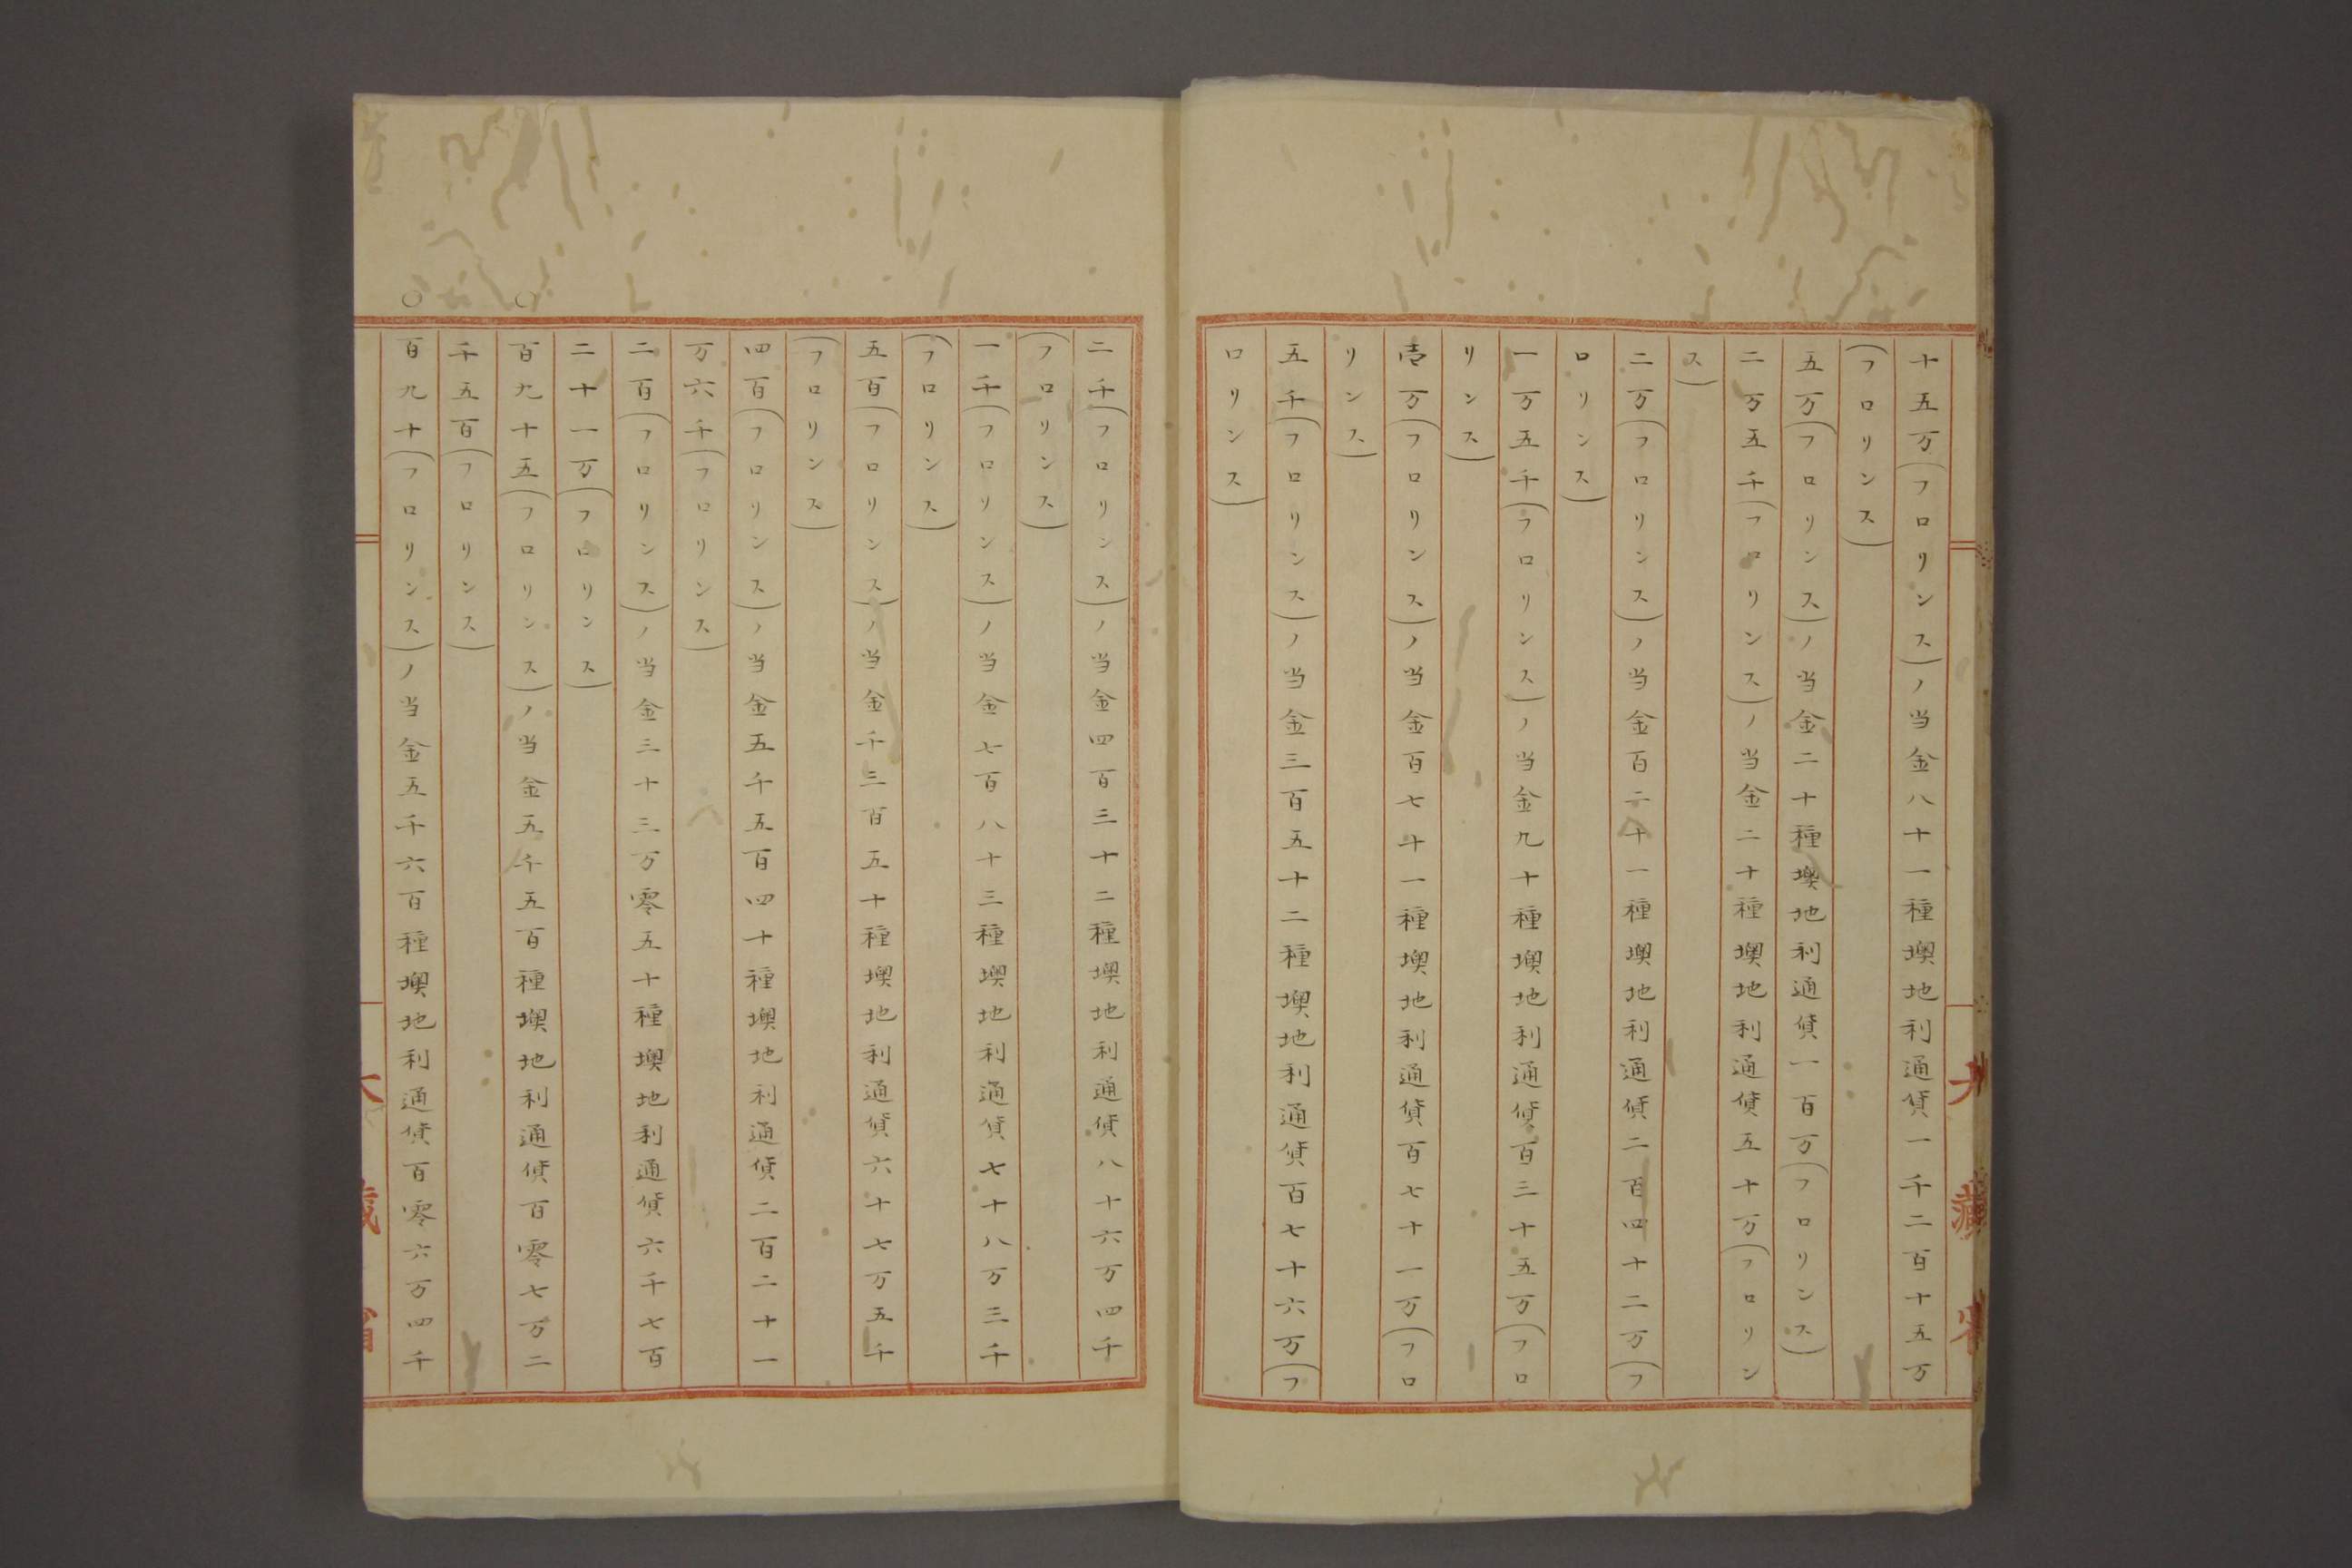 十五万(フロリンス)ノ当金八十一種墺地利通貨一千二百十五万
(フロリンス)
五万(フロリンス)ノ当金二十種墺地利通貨一百万(フロリンス)
二万五千(フロリンス)ノ当金二十種墺地利通貨五十万(フロリン
ス)
二万(フロリンス)ノ当金百二十一種墺地利通貨二百四十二万(フ
ロリンス)
一万五千(フロリンス)ノ当金九十種墺地利通貨百三十五万(フロ
リンス)
壱万(フロリンス)ノ当金百七十一種墺地利通貨百七十一万(フロ
リンス)
五千(フロリンス)ノ当金三百五十二種墺地利通貨百七十六万(フ
ロリンス)
二千(フロリンス)ノ当金四百三十二種墺地利通貨八十六万四千
(フロリンス)
一千(フロリンス)ノ当金七百八十三種墺地利通貨七十八万三千
(フロリンス)
五百(フロリンス)ノ当金千三百五十種墺地利通貨六十七万五千
(フロリンス)
四百(フロリンス)ノ当金五千五百四十種墺地利通貨二百二十一
万六千(フロリンス)
二百(フロリンス)ノ当金三十三万零五十種墺地利通貨六千七百
二十一万(フロリンス)
○
百九十五(フロリンス)ノ当金五千五百種墺地利通貨百零七万二
千五百(フロリンス)
○
百九十(フロリンス)ノ当金五千六百種墺地利通貨百零六万四千
大蔵省